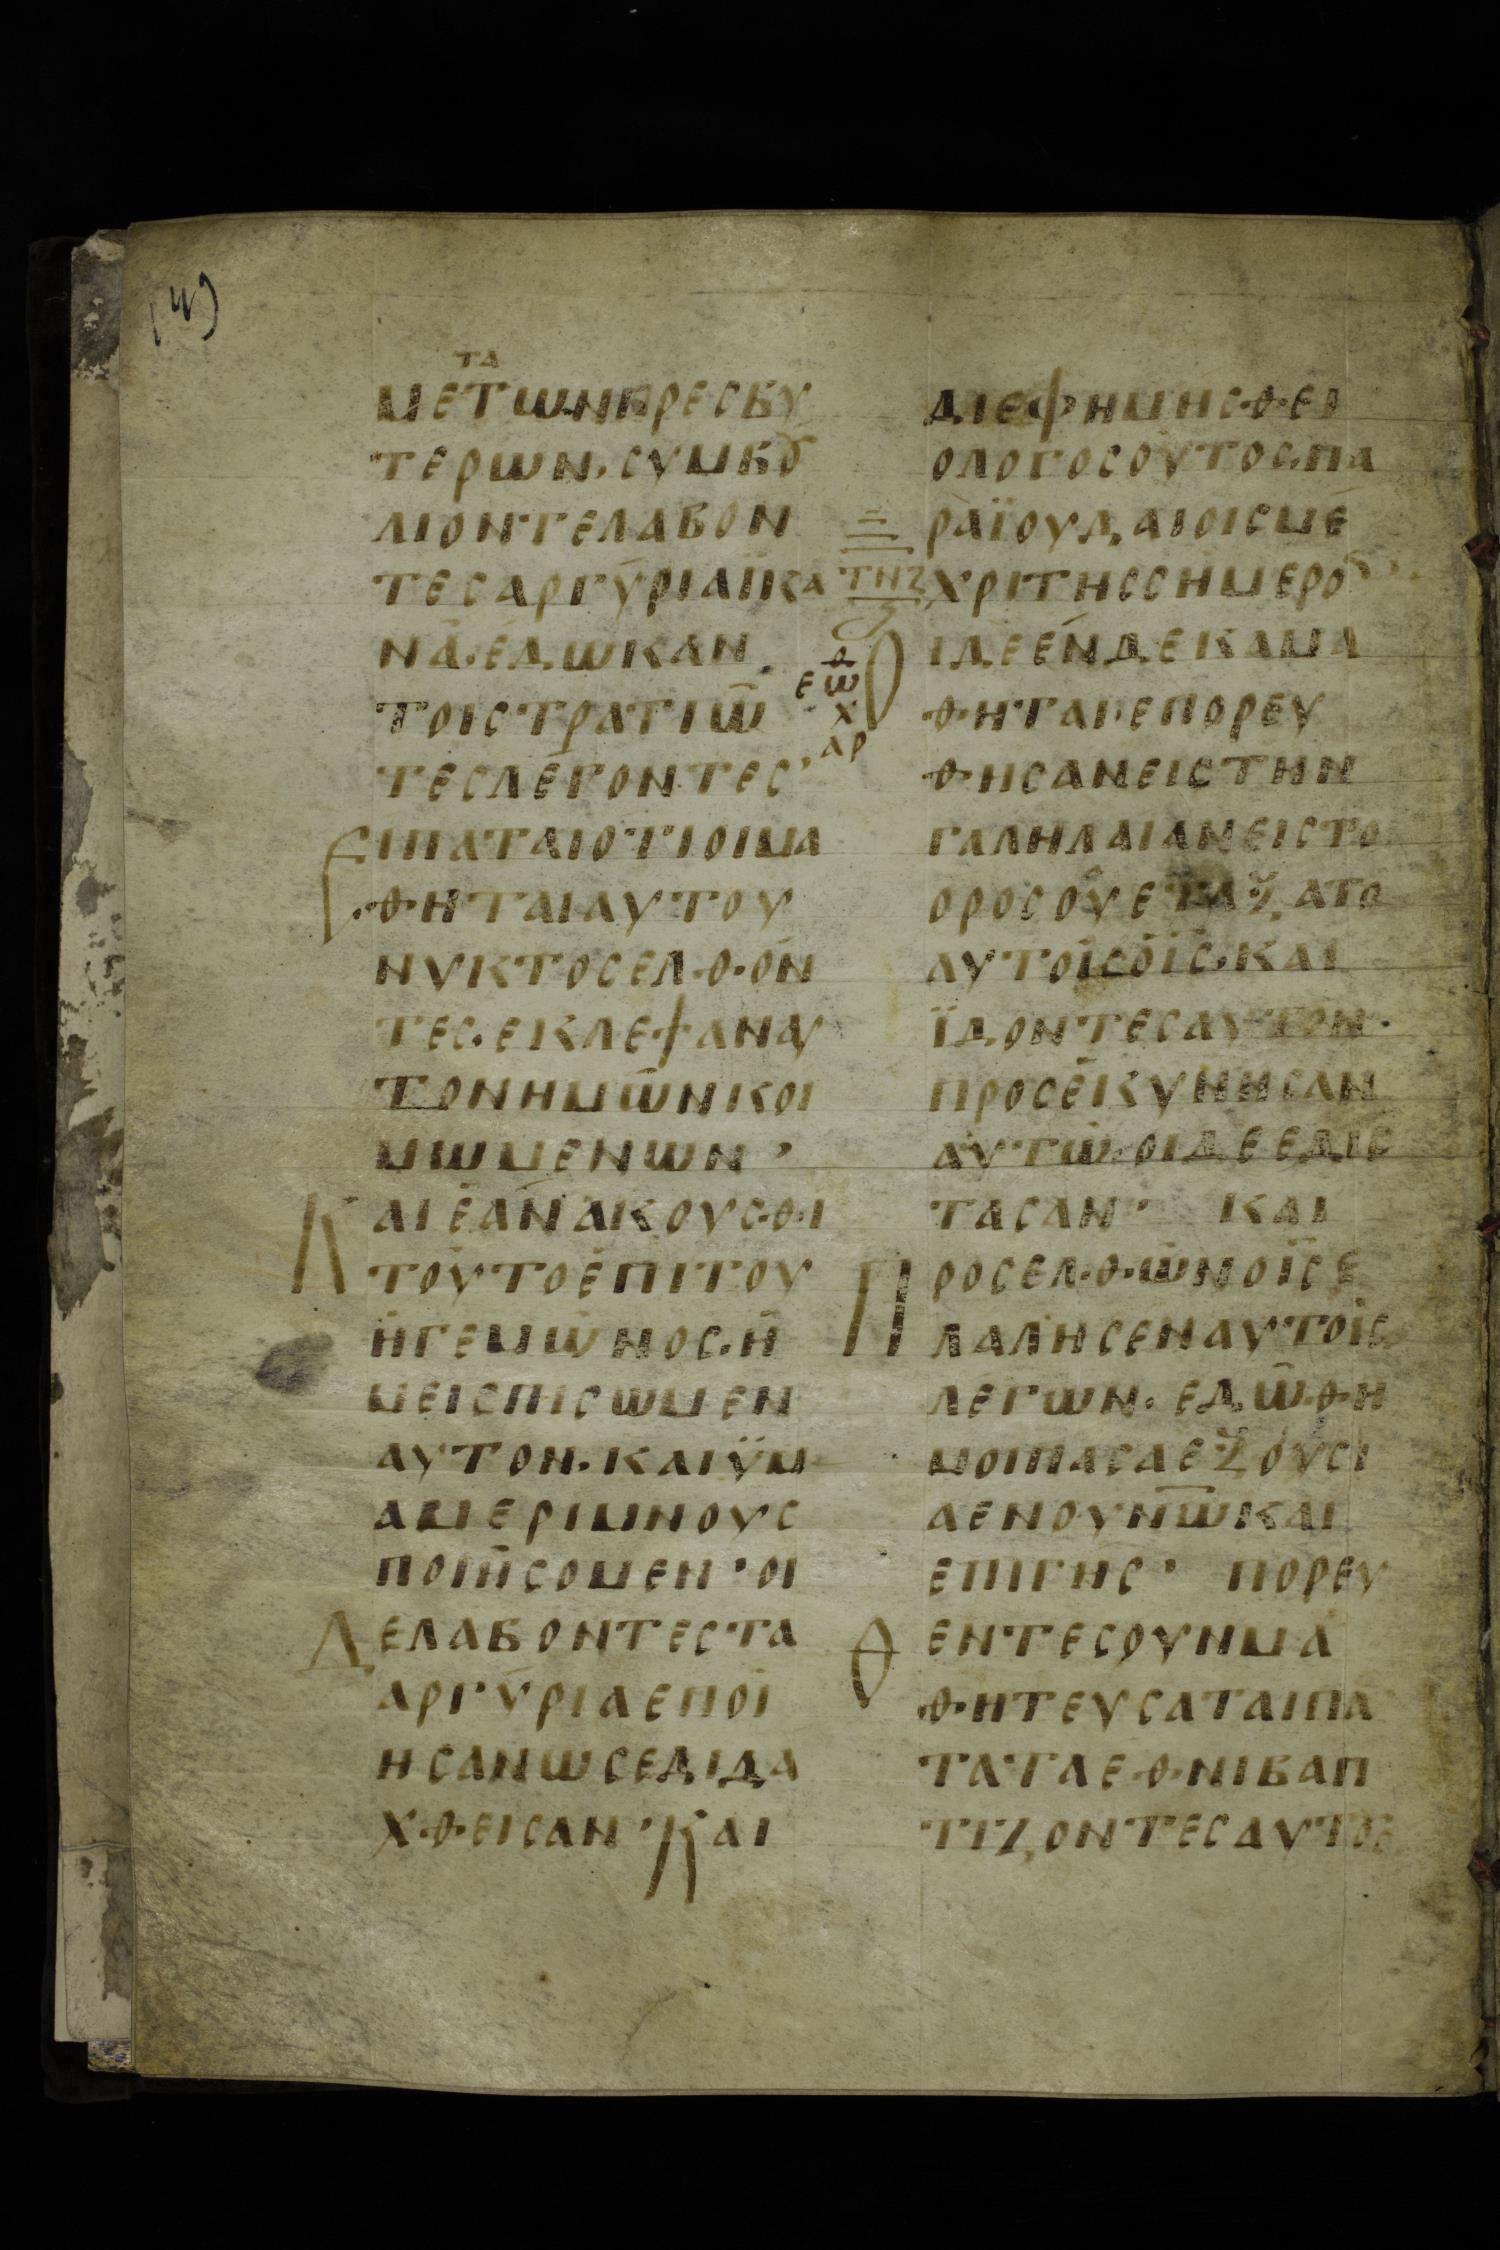 τα
ΜΕΤΩΝΠΡΕСΒΥ
ΤΕΡΩΝ·СΥΜΒȢ
ΛΙΟΝΤΕΛΑΒΟΝ
ΤΕСΑΡΓΥΡΙΑΪΚΑ
ΝΑ·ΕΔΩΚΑΝ
ΤΟΙСΤΡΑΤΙΩ
ΤΕСΛΕΓΟΝΤΕС·
ΕΙΠΑΤΑΙΟΤΙΟΙΜΑ
ΘΗΤΑΙΑΥΤΟΥ
ΝΥΚΤΟСΕΛΘΟΝ
ΤΕС·ΕΚΛΕΨΑΝΑΥ
ΤΟΝΗΜΩΝΚΟΙ
ΜΩΜΕΝΩΝ·
ΚΑΙΕΑΝΑΚΟΥСΘΙ
ΤΟΥΤΟΕΠΙΤΟΥ
ΗΓΕΜΩΝΟС·Η
ΜΕΙСΠΙСΩΜΕΝ
ΑΥΤΟΝ·ΚΑΙΫΜ
ΑΜΕΡΙΜΝΟΥС
ΠΟΙΗСΟΜΕΝ·ΟΙ
ΔΕΛΑΒΟΝΤΕСΤΑ
ΑΡΓΥΡΙΑΕΠΟΙ
ΗСΑΝΩСΕΔΙΔΑ
ΧΘΕΙСΑΝ·ΚΑΙ
ΔΙΕΦΗΜΗСΘΕΙ
ΟΛΟΓΟСΟΥΤΟС·ΠΑ
ΡΑΪΟΥΔΑΙΟΙСΜΕ
ΤΗΖ
ΧΡΙΤΗССΗΜΕΡΟȢ
ΟΙΔΕΕΝΔΕΚΑΜΑ
ΘΗΤΑΙΕΠΟΡΕΥ
ΑΡ
ΘΗСΑΝΕΙСΤΗΝ
ΓΑΛΗΛΑΙΑΝΕΙСΤΟ
ΟΡΟСΟΥΕΤΑΞΑΤΟ
ΑΥΤΟΙСΟΙС·ΚΑΙ
ΪΔΟΝΤΕСΑΥΤΟΝ·
ΠΡΟСΕΚΥΝΗСΑΝ
ΑΥΤΩ·ΟΙΔΕΕΔΙС
ΤΑСΑΝ· ΚΑΙ
ΠΡΟСΕΛΘΩΝΟΙСΕ
ΛΑΛΗСΕΝΑΥΤΟΙС
ΛΕΓΩΝ·ΕΔΩΘΗ
ΜΟΙΠΑСΑΕΞΟΥСΙ
ΑΕΝΟΥΝΩΚΑΙ
ΕΠΙΓΗС· ΠΟΡΕΥ
ΘΕΝΤΕСΟΥΝΜΑ
ΘΗΤΕΥСΑΤΑΙΠΑ
ΤΑΤΑΕΘΝΙΒΑΠ
ΤΙΖΟΝΤΕСΑΥΤΟΣ